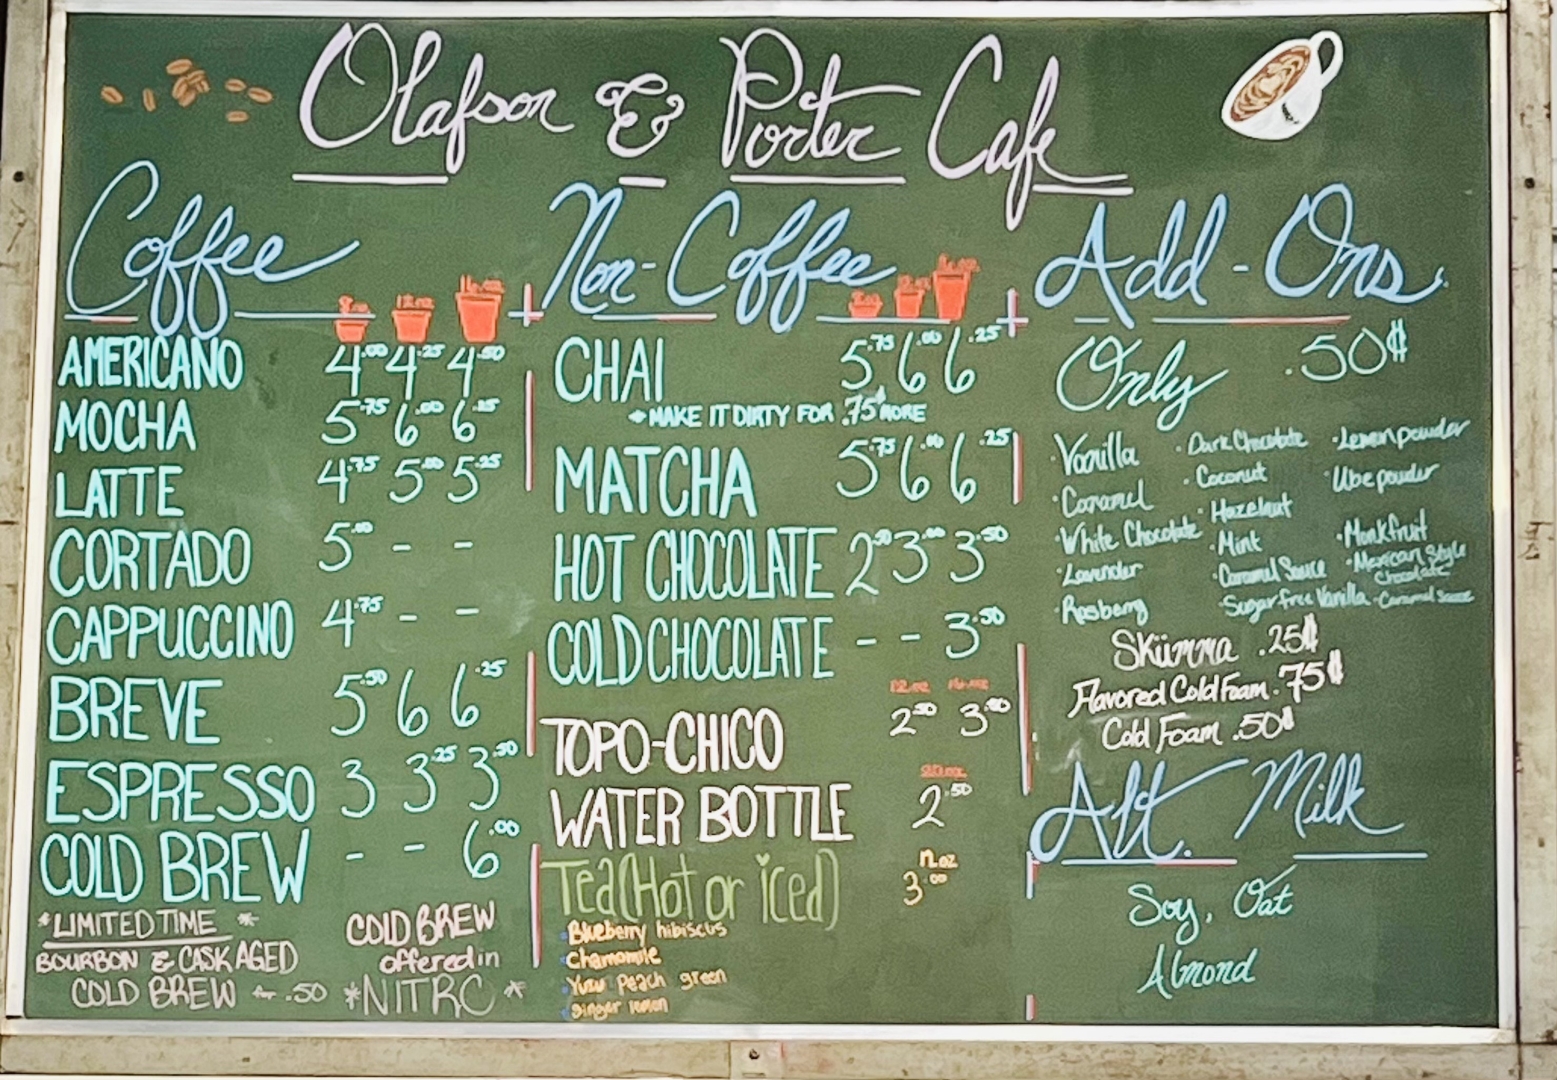 Olafson & Porter Cafe
Coffee
8 oz 12 oz 16 oz
AMERICANO 4.00 4.25 4.50
MOCHA 5.75 6.00 6.25
LATTE 4.75 5.00 5.25
CORTADO 5.00 - -
CAPPUCCINO 4.75 - -
BREVE 5.50 6 6.25
ESPRESSO 3 3.25 3.50
COLD BREW - - 6.00
*LIMITED TIME *
BOURBON & CASK AGED
COLD BREW for .50
COLD BREW
offered in
*NITRO*
Non-Coffee
8 oz 12 oz 16 oz
CHAI 5.75 6.00 6.25
*MAKE IT DIRTY FOR .75¢ MORE
MATCHA 5.75 6.00 6.25
HOT CHOCOLATE 2.50 3.00 3.50
COLD CHOCOLATE - - 3.50
12 oz 16 oz
TOPO-CHICO 2.50 3.50
WATER BOTTLE 2.50
12 oz
Tea (Hot or iced) 3.00
Blueberry hibiscus
Chamomile
Yuzu Peach green
Ginger lemon
Add-Ons
Only .50¢
·Vanilla ·Dark Chocolate ·Lemon powder
·Caramel ·Coconut ·Ube powder
·White Chocolate ·Hazelnut
·Lavender ·Mint ·Monkfruit
·Rasberry ·Caramel Sauce ·Mexican Style Chocolate
·Sugar free Vanilla ·Caramel Sauce
Skümma .25¢
Flavored Cold Foam .75¢
Cold Foam .50¢
Alt. Milk
Soy, Oat
Almond